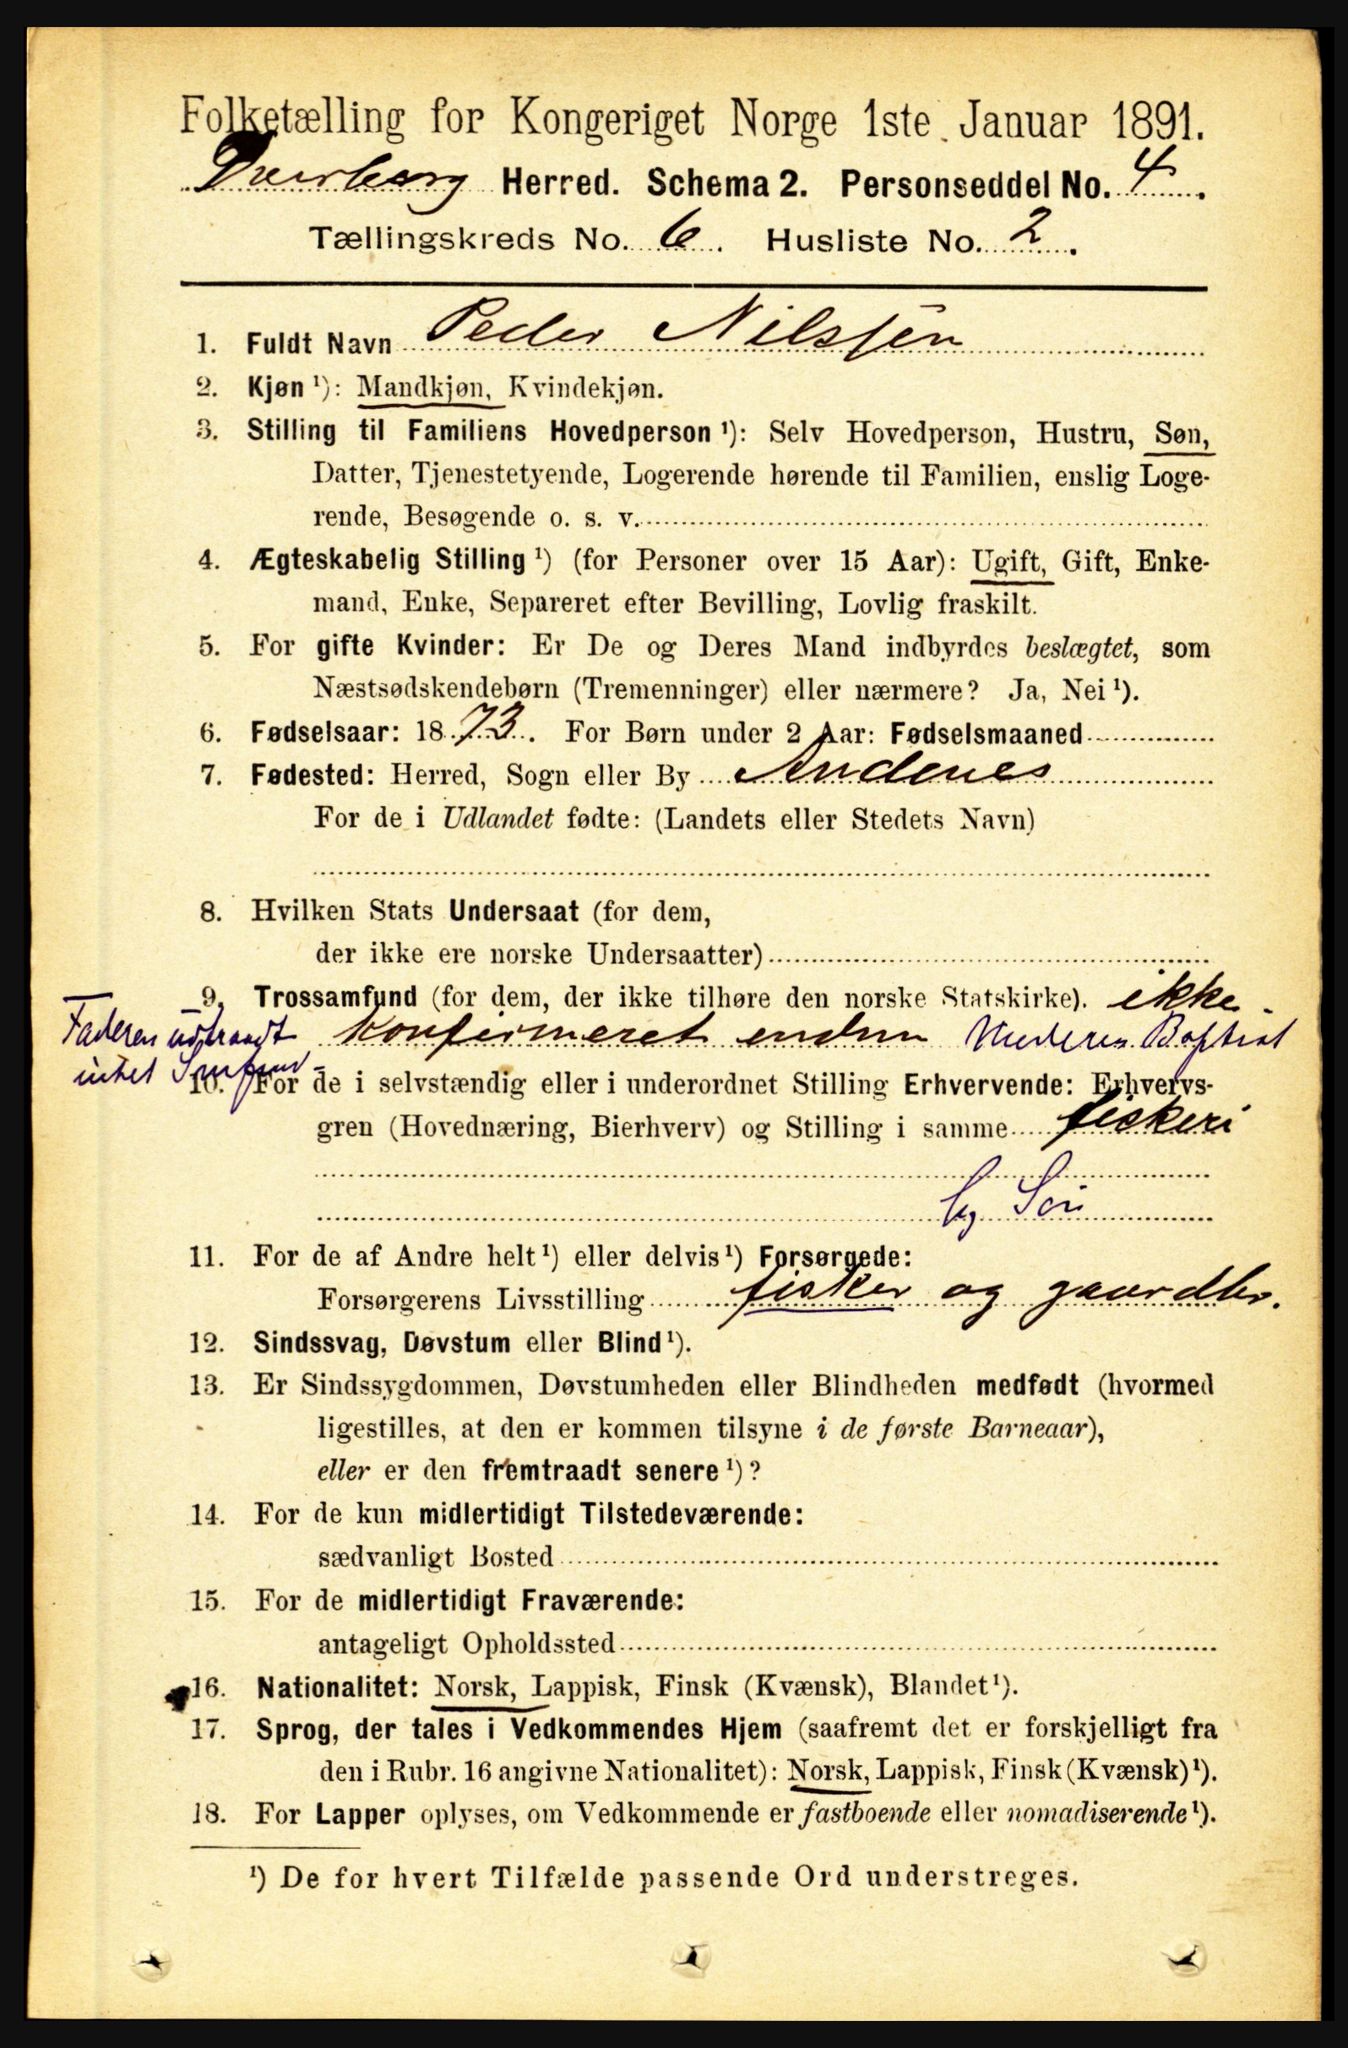 Folketælling for Kongeriget Norge 1ste Januar 1891.
Dverberg Herred. Schema 2. Personseddel No. 4.
Tællingskreds No. 6. Husliste No. 2.
1. Fuldt Navn Peder Nilssen
2. Kjøn ¹): Mandkjøn, Kvindekjøn.
3. Stilling til Familiens Hovedperson ¹): Selv Hovedperson, Hustru, Søn,
Datter, Tjenestetyende, Logerende hørende til Familien, enslig Loge-
rende, Besøgende o. s. v.
4. Ægteskabelig Stilling ¹) (for Personer over 15 Aar): Ugift, Gift, Enke-
mand, Enke, Separeret efter Bevilling, Lovlig fraskilt.
5. For gifte Kvinder: Er De og Deres Mand indbyrdes beslægtet, som
Næstsødskendebørn (Tremenninger) eller nærmere? Ja, Nei ¹).
6. Fødselsaar: 1873. For Børn under 2 Aar: Fødselsmaaned
7. Fødested: Herred, Sogn eller By Andenes
For de i Udlandet fødte: (Landets eller Stedets Navn)
8. Hvilken Stats Undersaat (for dem,
der ikke ere norske Undersaatter)
9. Trossamfund (for dem, der ikke tilhøre den norske Statskirke). ikke
Faderen udtraadt konfirmeret endnu Moderen Baptist
intet Smfund
10. For de i selvstændig eller i underordnet Stilling Erhvervende: Erhvervs-
gren (Hovednæring, Bierhverv) og Stilling i samme fiskeri
11. For de af Andre helt ¹) eller delvis ¹) Forsørgede:
Forsørgerens Livsstilling fisker og gaardbr.
12. Sindssvag, Døvstum eller Blind ¹).
13. Er Sindssygdommen, Døvstumheden eller Blindheden medfødt (hvormed
ligestilles, at den er kommen tilsyne i de første Barneaar),
eller er den fremtraadt senere ¹)?
14. For de kun midlertidigt Tilstedeværende:
sædvanligt Bosted
15. For de midlertidigt Fraværende:
antageligt Opholdssted
16. Nationalitet: Norsk, Lappisk, Finsk (Kvænsk), Blandet ¹).
17. Sprog, der tales i Vedkommendes Hjem (saafremt det er forskjelligt fra
den i Rubr. 16 angivne Nationalitet): Norsk, Lappisk, Finsk (Kvænsk) ¹).
18. For Lapper oplyses, om Vedkommende er fastboende eller nomadiserende ¹).
¹) De for hvert Tilfælde passende Ord understreges.